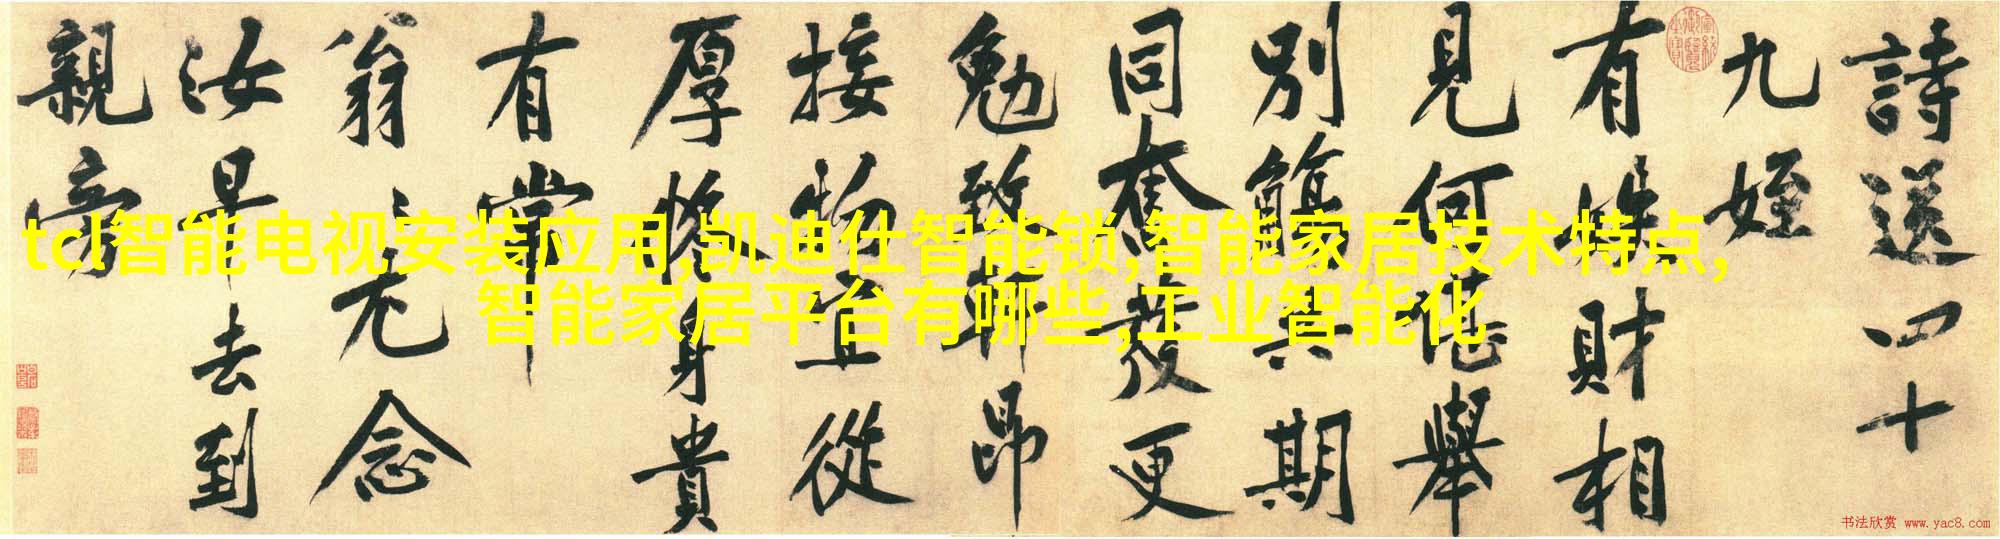 詩送四十
九姪
有財相
見何堪舉
別觴與期
同奮發更
勉致軒昂
接物宜從
厚將身貴
有常
翁〻无念
汝早去到
親旁
tcl智能电视安装应用,凯迪仕智能锁,智能家居技术特点,
智能家居平台有哪些,工业智能化
书法欣赏 www.yac8.com